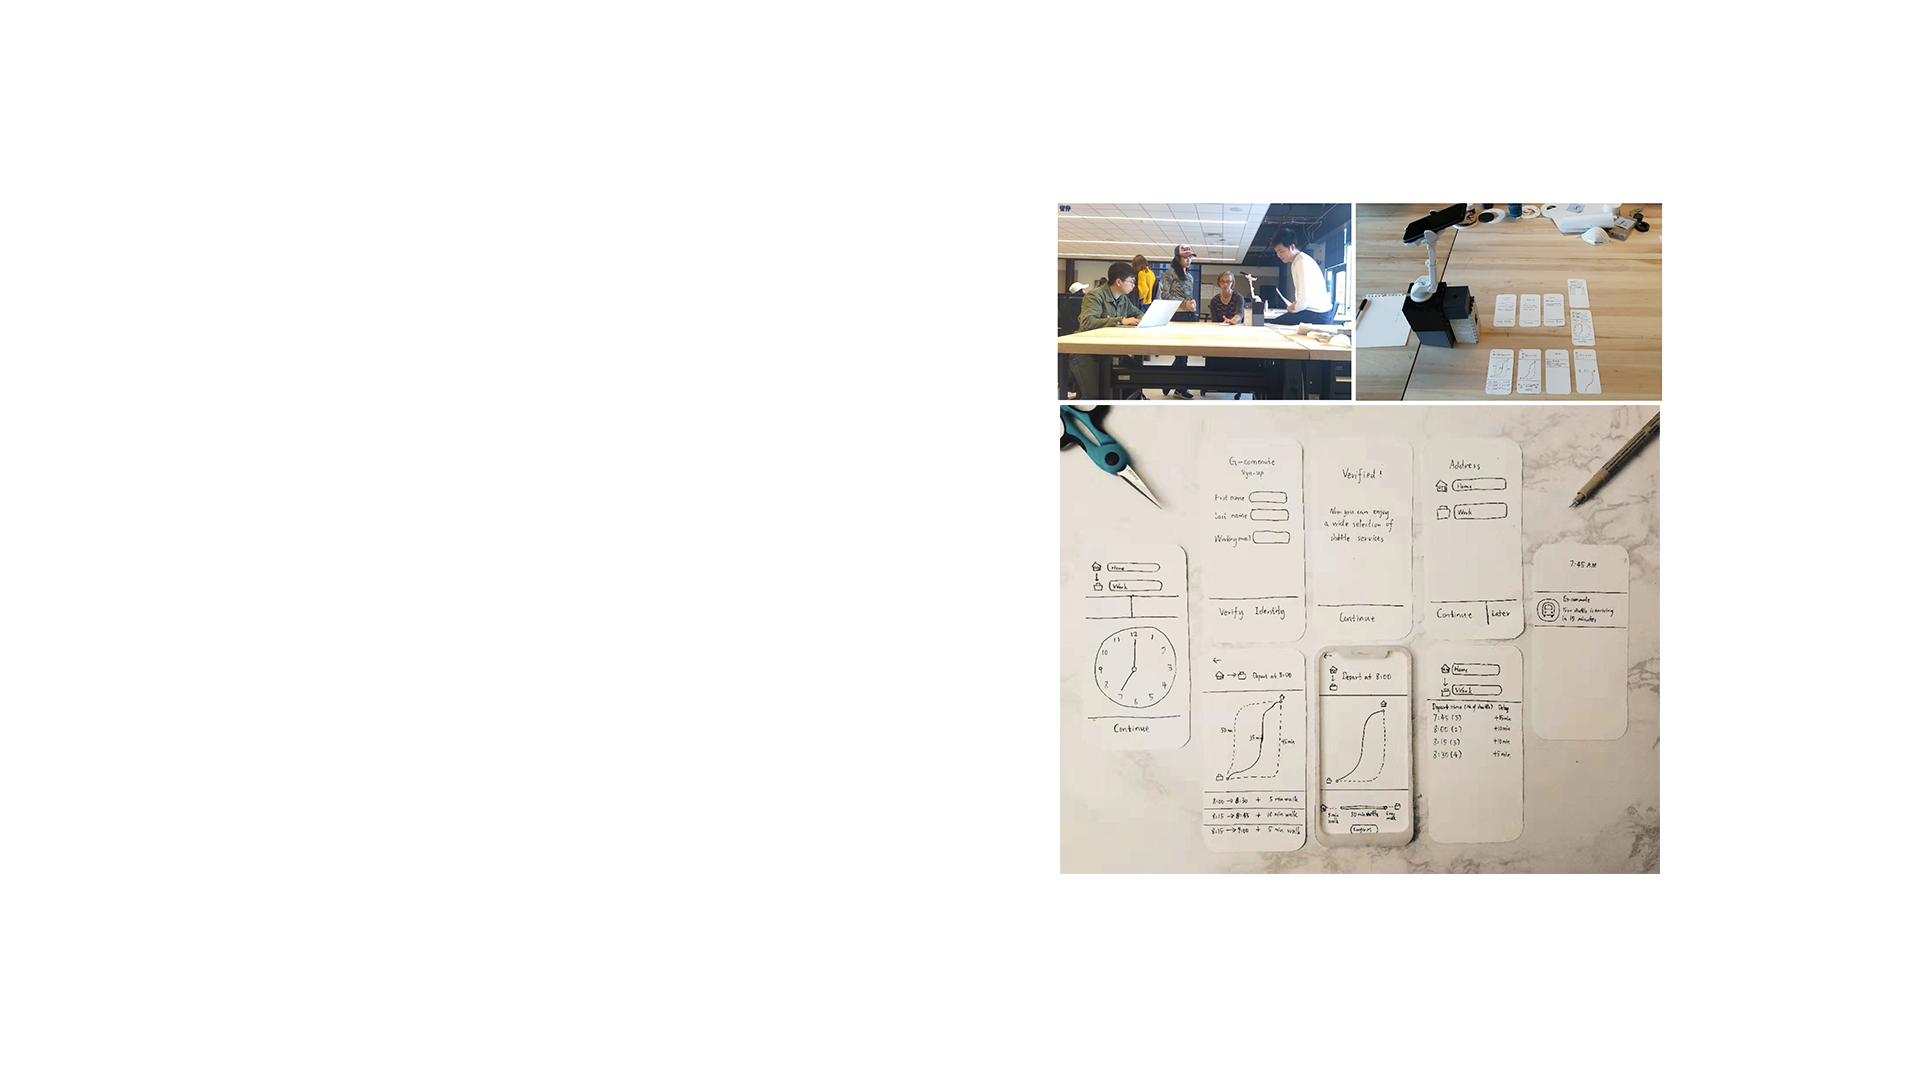 暂停
G-commute
Sign-up
First name
Last name
Working mail
Verify Identity
Verified!
Now you can enjoy
a wide selection of
shuttle services
Continue
Address
Home
Work
Continue
Later
Home
Work
12
1
2
3
4
5
6
7
8
9
10
11
Continue
7:45 AM
G-commute
Your shuttle is arriving
in 15 minutes
Depart at 8:00
50 min
35 min
45 min
8:00 → 8:30 + 5 min walk
8:15 → 8:45 + 10 min walk
8:15 → 9:00 + 5 min walk
Depart at 8:00
5 min
walk
30 min shuttle
5 min
walk
Confirm
Home
Work
Depart time (No. of shuttle) Delay
7:45 (3) +15 min
8:00 (2) +10 min
8:15 (3) +10 min
8:30 (4) +5 min